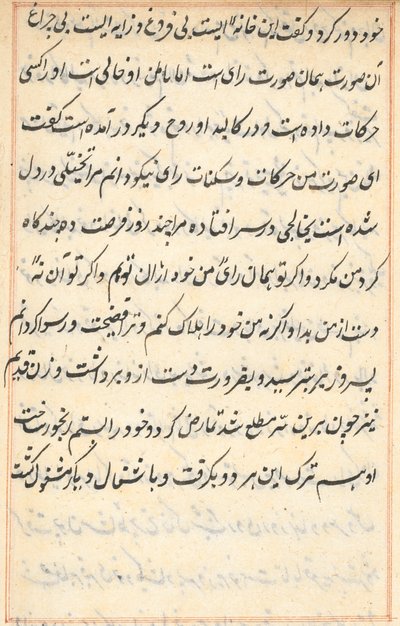 خود دور کرد و گفت این خانه ایست بی فروغ و زاویه ایست بی چراغ
آن صورت همان صورت رای است اما باطن او خالی است او را کسی
حرکات داده است و در کالبد او روح دیگر در آمده است گفت
ای صورت من حرکات و سکنات رای نیکو دانم مرا تخیلی در دل
شده است و خلجی در سر افتاده مرا چند روز فرصت ده چندگاه
گرد من مگرد و اگر تو همان رای من خود ازان توام و اگر تو آن نه
دست از من بدار و اگر نه من خود را هلاک کنم و ترا فضیحت و رسوا گردانم
پسر وزیر بترسید و بضرورت دست ازو برداشت و زن قدیم
نیز چون برین سر مطلع شد تمارض کرد و خود را بستم رنجور ساخت
او هم ترک این هر دو بگرفت و با شتغال دیگر مشغول گشت